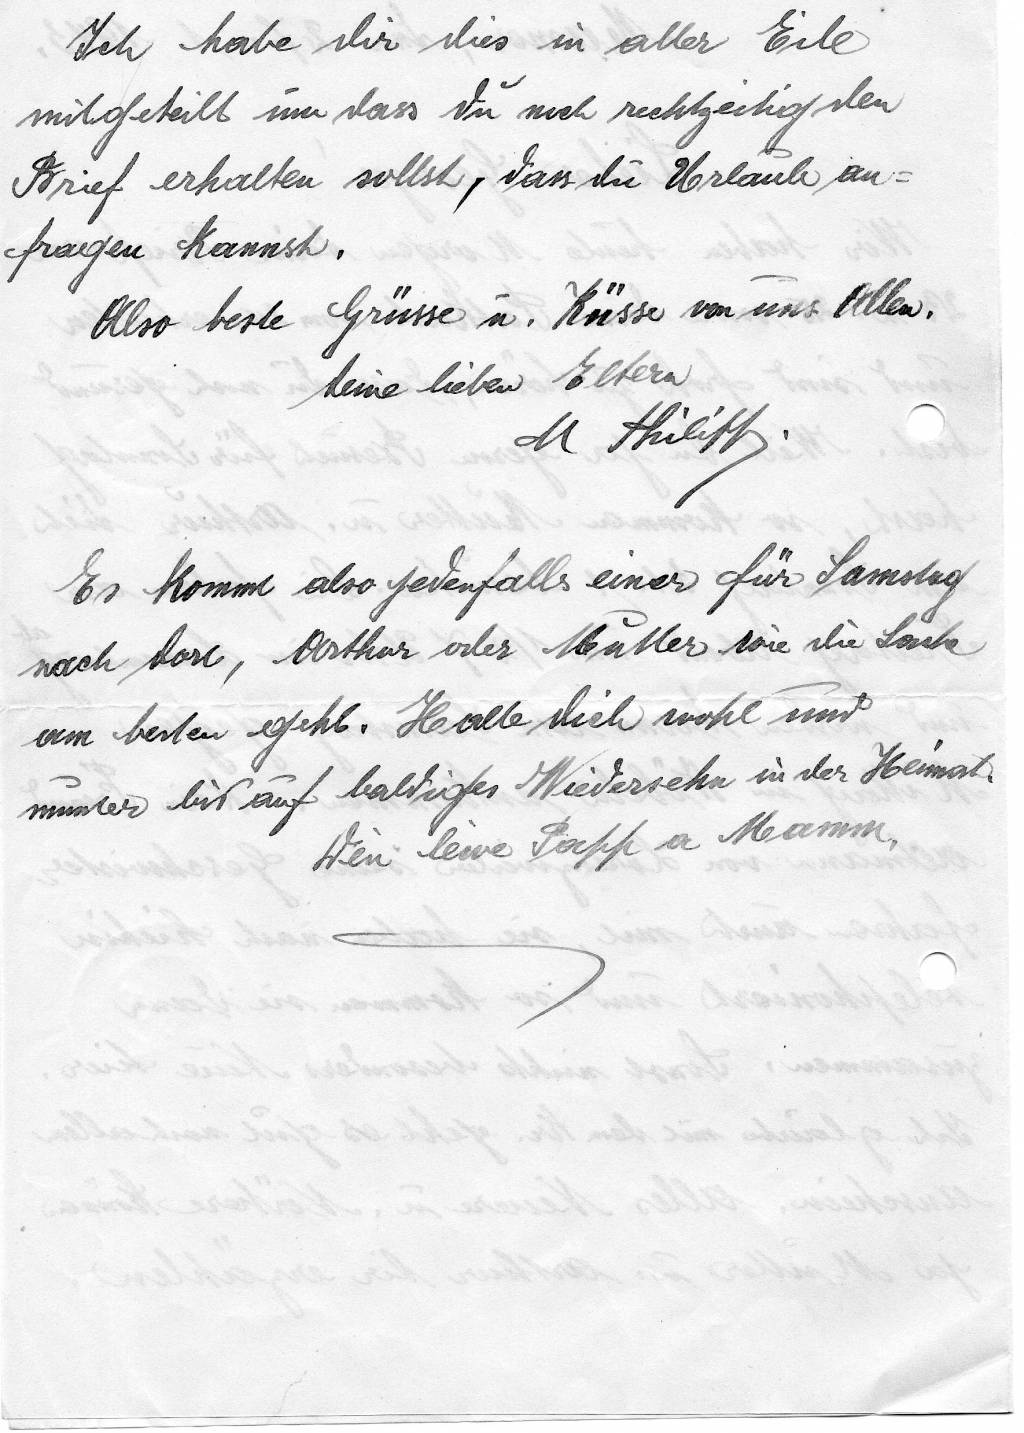 Ich habe dir dies in aller Eile
mitgeteilt um dass du noch rechtzeitig den
Brief erhalten sollst, dass du Urlaub an=
fragen kannst.
Also beste Grüsse u. Küsse von uns Allen.
Deine lieben Eltern
M Philipp.
Es kommt also jedenfalls einer für Samstag
nach dort, Arthur oder Mutter wie die Sache
am besten geht. Halte dich wohl und
munter bis auf baldiges Wiedersehn in der Heimat.
Dëi léiwe Papp a Mamm.